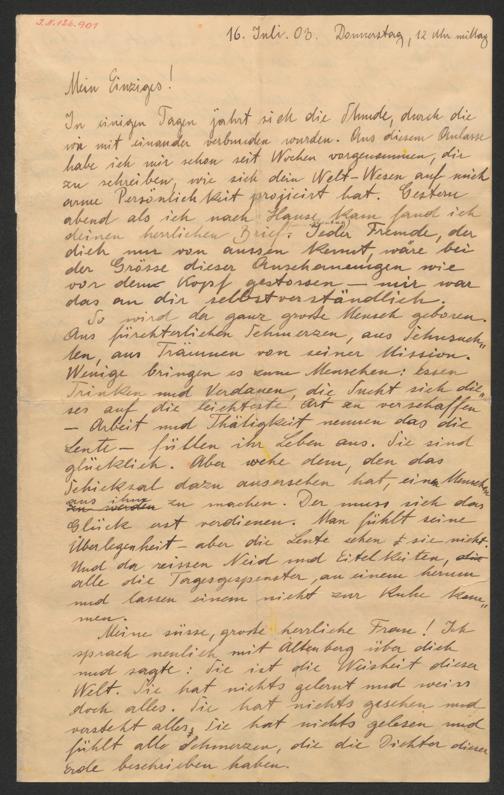 J.N. 126.901
16. Juli. 03. Donnerstag, 12 Uhr mittag
Mein Einziges!
In einigen Tagen jährt sich die Stunde, durch die
wir mit einander verbunden wurden. Aus diesem Anlasse
habe ich mir schon seit Wochen vorgenommen, dir
zu schreiben, wie sich dein Welt-Wesen auf mich
arme Persönlichkeit projicirt hat. Gestern
abend als ich nach Hause kam fand ich
deinen herrlichen Brief. Jeder Fremde, der
dich nur von aussen kennt, wäre bei
der Grösse dieser Anschauungen wie
vor den Kopf gestossen – mir war
das an dir selbstverständlich.
So wird der ganz große Mensch geboren.
Aus fürchterlichen Schmerzen, aus Sehnsuch„
ten, aus Träumen von seiner Mission.
Wenige bringen es zum Menschen: Essen
Trinken und Verdauen, die Sucht sich die„
ses auf die leichteste Art zu verschaffen
– Arbeit und Thätigkeit nennen das die
Leute – füllen ihr Leben aus. Sie sind
glücklich. Aber wehe dem, den das
Schicksal dazu ausersehen hat, einen Menschen
aus ihm zu werden zu machen. Der muss sich das
Glück erst verdienen. Man fühlt seine
Überlegenheit – aber die Leute sehen sie nicht.
Und da reissen Neid und Eitelkeiten, die
alle die Tagesgespenster, an einem herum
und lassen einem nicht zur Ruhe kom„
men.
Meine süsse, große herrliche Frau! Ich
sprach neulich mit Altenberg über dich
und sagte: Sie ist die Weisheit dieser
Welt. Sie hat nichts gelernt und weiss
doch alles. Sie hat nichts gesehen und
versteht alles, Sie hat nichts gelesen und
fühlt alle Schmerzen, die die Dichter dieser
Erde beschrieben haben.